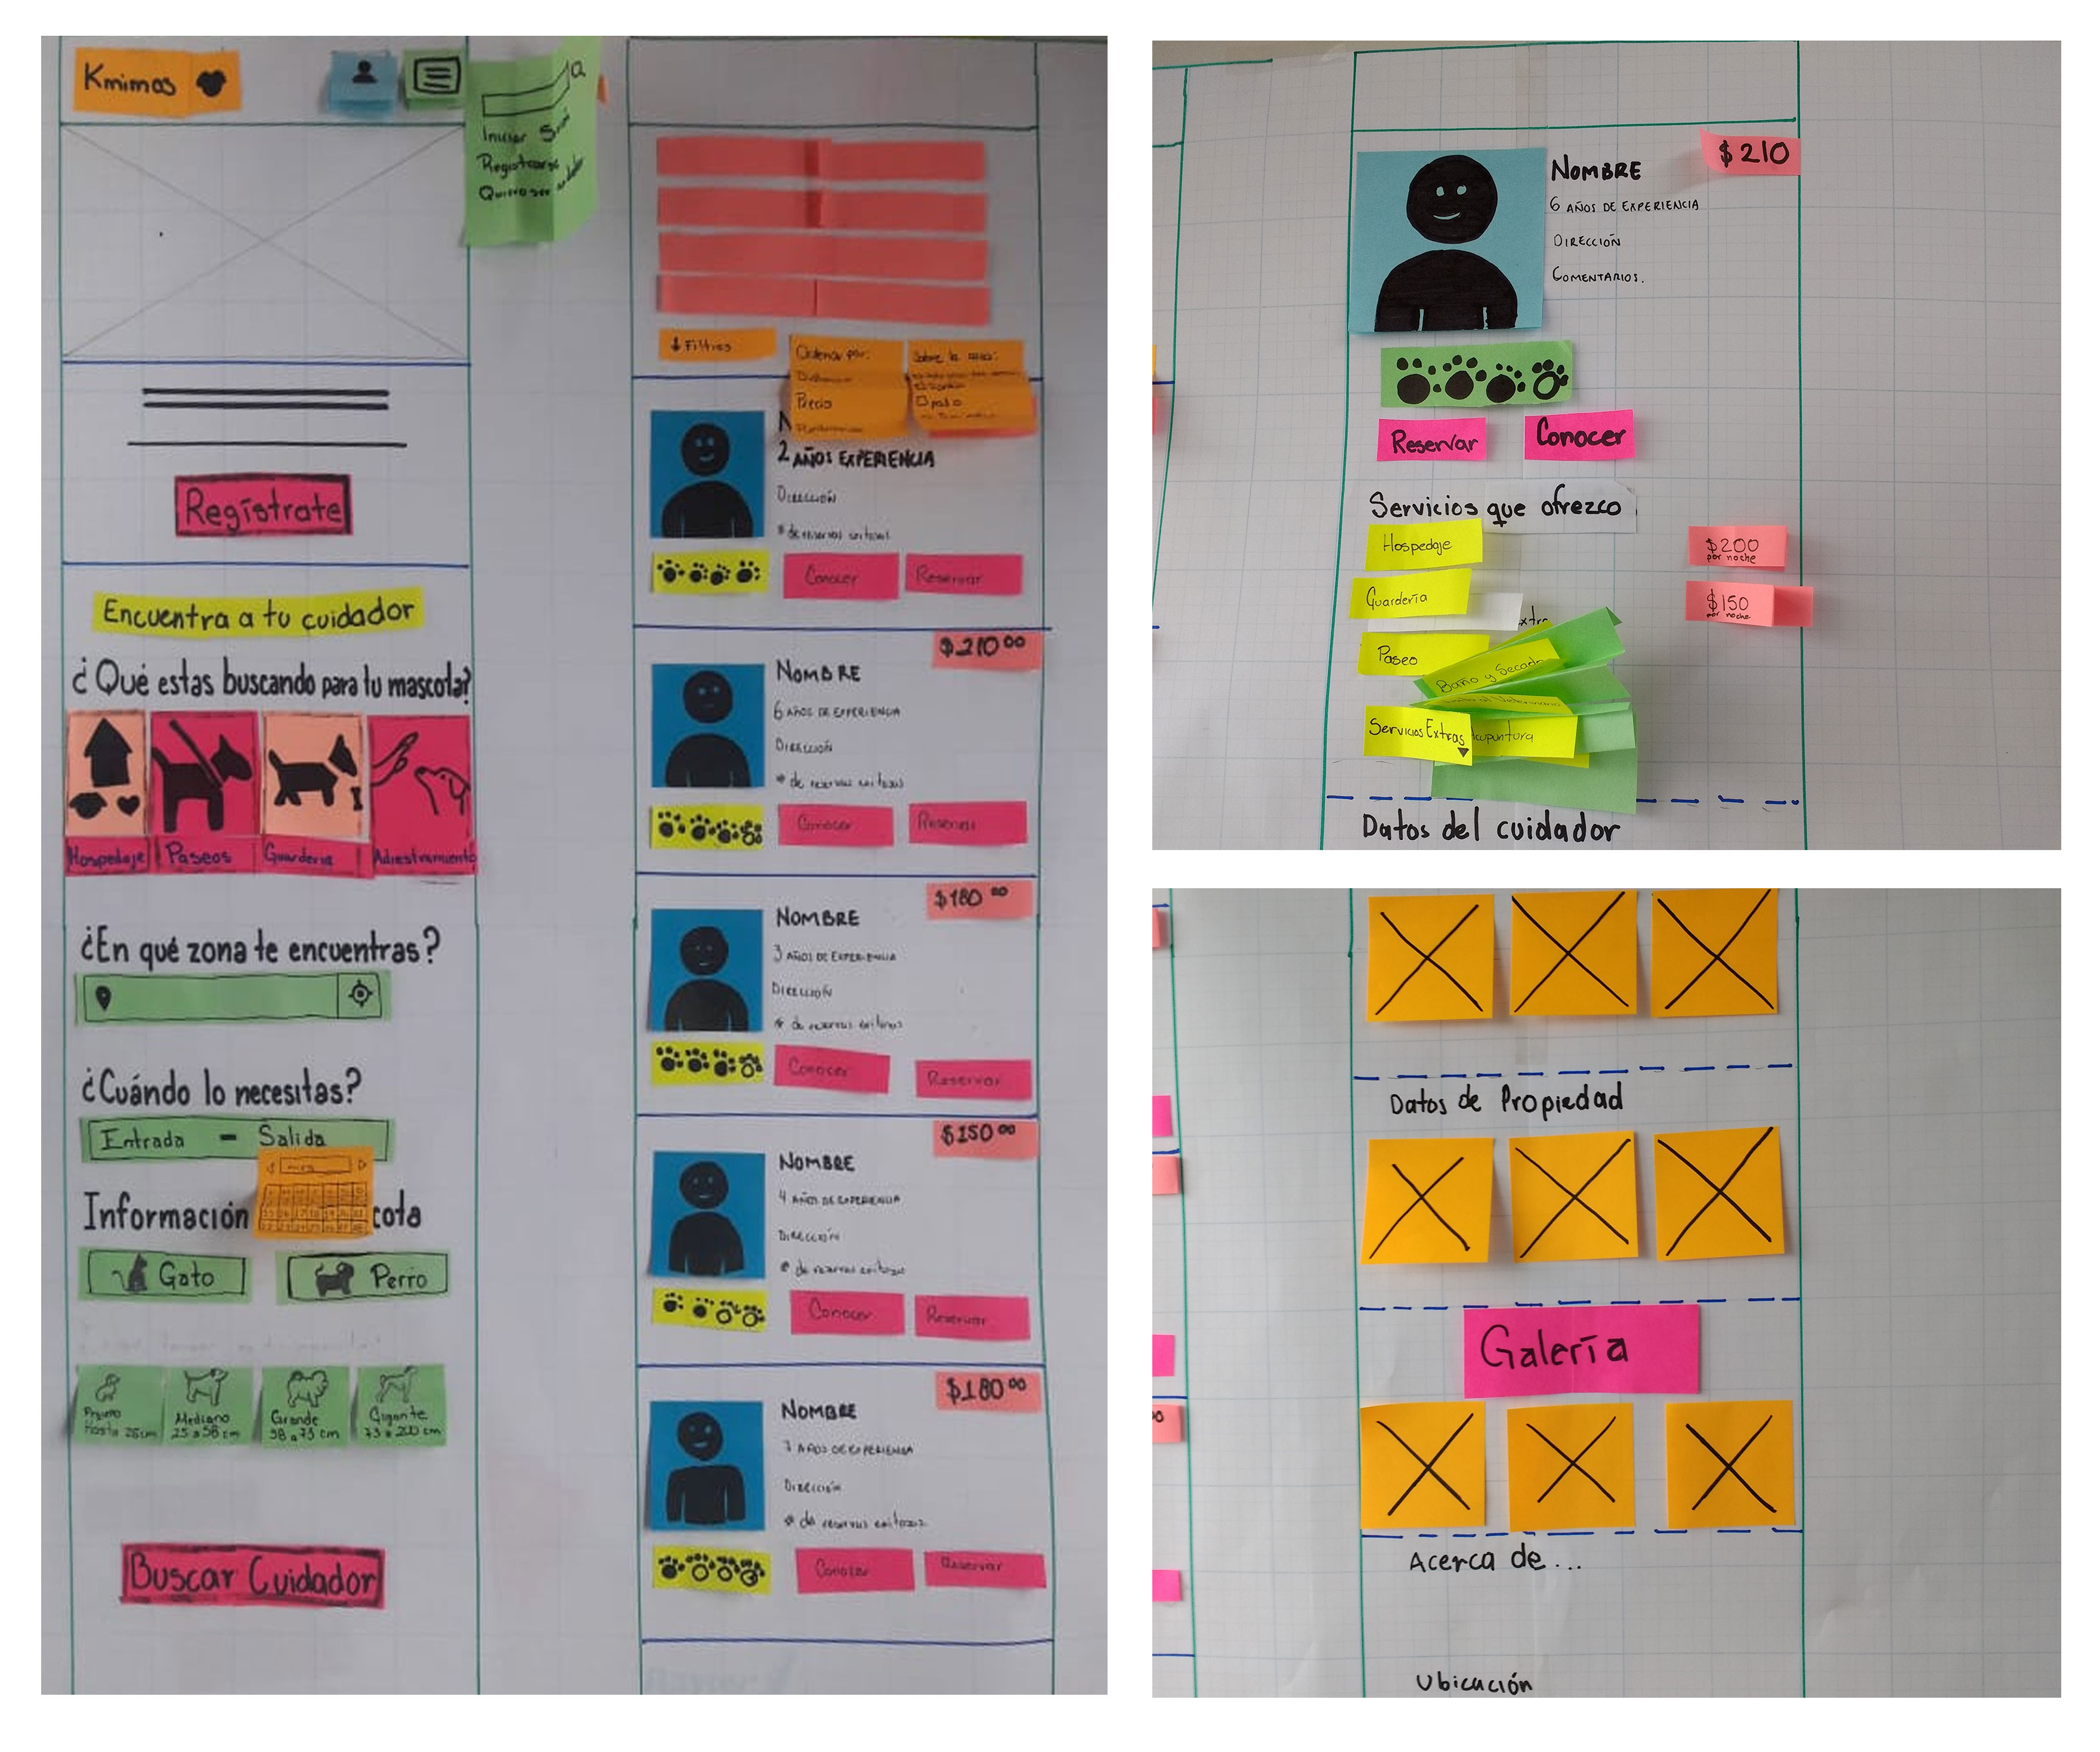 Kmimos
Iniciar
Registrarse
Quiero ser
Regístrate
Encuentra a tu cuidador
¿Qué estas buscando para tu mascota?
Hospedaje Paseos Guarderia Adiestramiento
¿En qué zona te encuentras?
¿Cuándo lo necesitas?
Entrada - Salida
mes
Información cota
Gato Perro
Hasta 25cm
Mediano
25 a 58 cm
Grande
58 a 73 cm
Gigante
73 a 200 cm
Buscar Cuidador
Filtros
Ordenar por:
Precio
Sobre la
patio
N
2 AÑOS EXPERIENCIA
DIRECCIÓN
# de reservas exitosas
Conocer Reservar
$210 00
NOMBRE
6 AÑOS DE EXPERIENCIA
DIRECCIÓN
# de reservas exitosas
Conocer Reservar
$180 00
NOMBRE
3 AÑOS DE EXPERIENCIA
DIRECCIÓN
# de reservas exitosas
Conocer Reservar
$150 00
NOMBRE
4 AÑOS DE EXPERIENCIA
DIRECCIÓN
# de reservas exitosas
Conocer Reservar
$180 00
NOMBRE
AÑOS DE EXPERIENCIA
DIRECCIÓN
# de reservas exitosas
Conocer Reservar
$210
NOMBRE
6 AÑOS DE EXPERIENCIA
DIRECCIÓN
COMENTARIOS.
Reservar Conocer
Servicios que ofrezco
Hospedaje
$200
por noche
Guardería
$150
por noche
xtra
Paseo
Baño y Secado
Servicios Extras
cupuntura
Datos del cuidador
Datos de Propiedad
Galería
Acerca de...
Ubicación